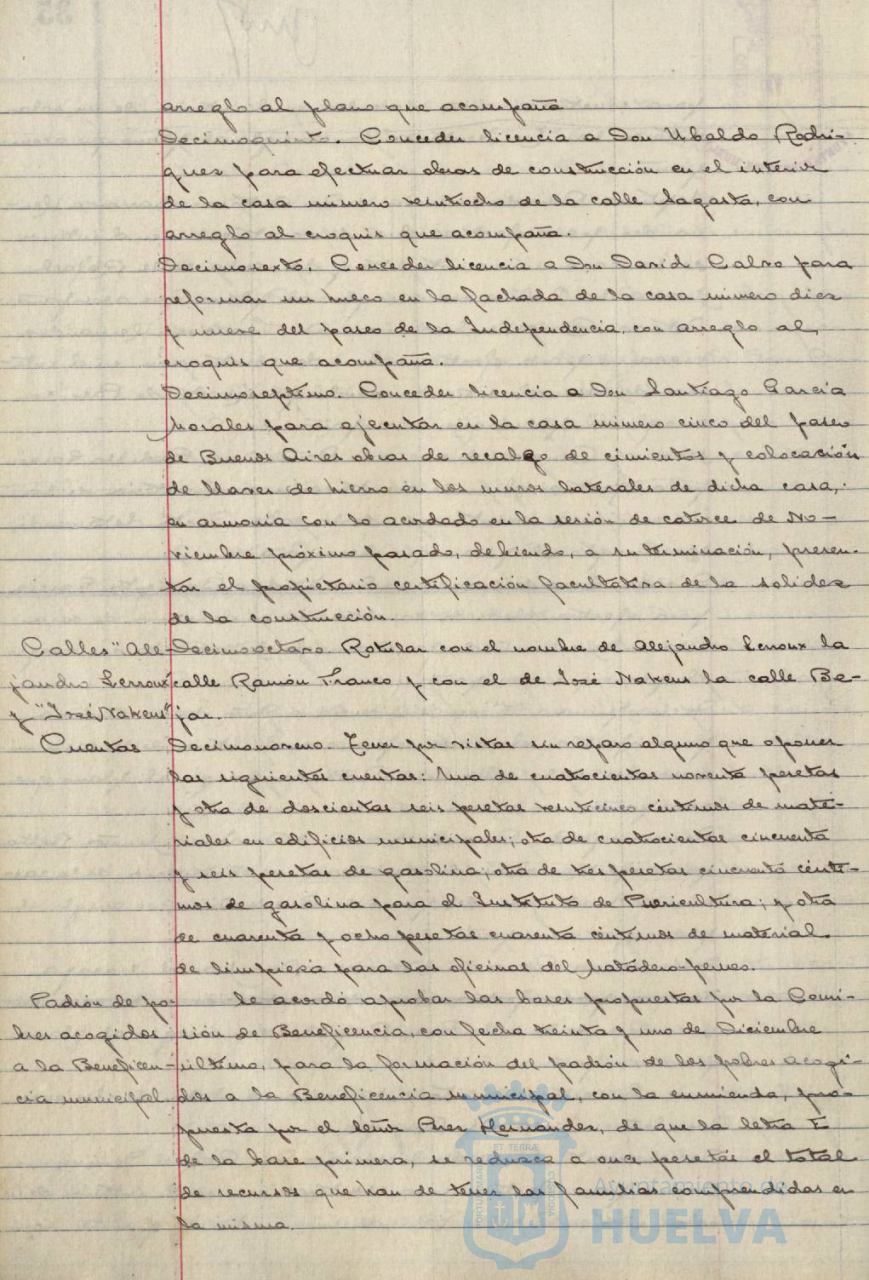 arreglo al plano que acompaña
Decimoquinto. Conceder licencia a Don Ubaldo Rodri-
guez para efectuar obras de construcción en el interior
de la casa número veintiocho de la calle Sagasta, con
arreglo al croquis que acompaña.
Decimosexto. Conceder licencia a Don David Calvo para
reformar un hueco en la fachada de la casa número diez
y nueve del paseo de la Independencia, con arreglo al
croquis que acompaña.
Decimoseptimo. Conceder licencia a Don Santiago García
Morales para ejecutar en la casa número cinco del paseo
de Buenos Aires obras de recalzo de cimientos y colocación
de llaves de hierro en los muros laterales de dicha casa,
en armonía con lo acordado en la sesión de catorce de No-
viembre próximo pasado, debiendo, a su terminación, presen-
tar el propietario certificación facultativa de la solidez
de la construcción.
Calles "Ale-
jandro Lerroux"
y "José Nakens"
Decimoctavo Rotular con el nombre de Alejandro Lerroux la
calle Ramón Franco y con el de José Nakens la calle Be-
jar.
Cuentas
Decimonoveno. Tener por vistas sin reparo alguno que oponer
las siguientes cuentas: Una de cuatrocientas noventa pesetas
y otra de doscientas seis pesetas veinticinco céntimos de mate-
riales en edificios municipales; otra de cuatrocientas cincuenta
y seis pesetas de gasolina; otra de tres pesetas cincuenta cénti-
mos de gasolina para el Instituto de Puericultura; y otra
de cuarenta y ocho pesetas cuarenta céntimos de material
de limpieza para las oficinas del Matadero-perreo.
Padrón de po-
bres acogidos
a la Beneficen-
cia municipal
Se acordó aprobar las bases propuestas por la Comi-
sión de Beneficencia, con fecha treinta y uno de Diciembre
último, para la formación del padrón de los pobres acogi-
dos a la Beneficencia municipal, con la enmienda, pro-
puesta por el Señor Pres Hernandez, de que la letra E
de la base primera, se reduzca a once pesetas el total
de recursos que han de tener las familias comprendidas en
la misma.
Ayuntamiento de
HUELVA